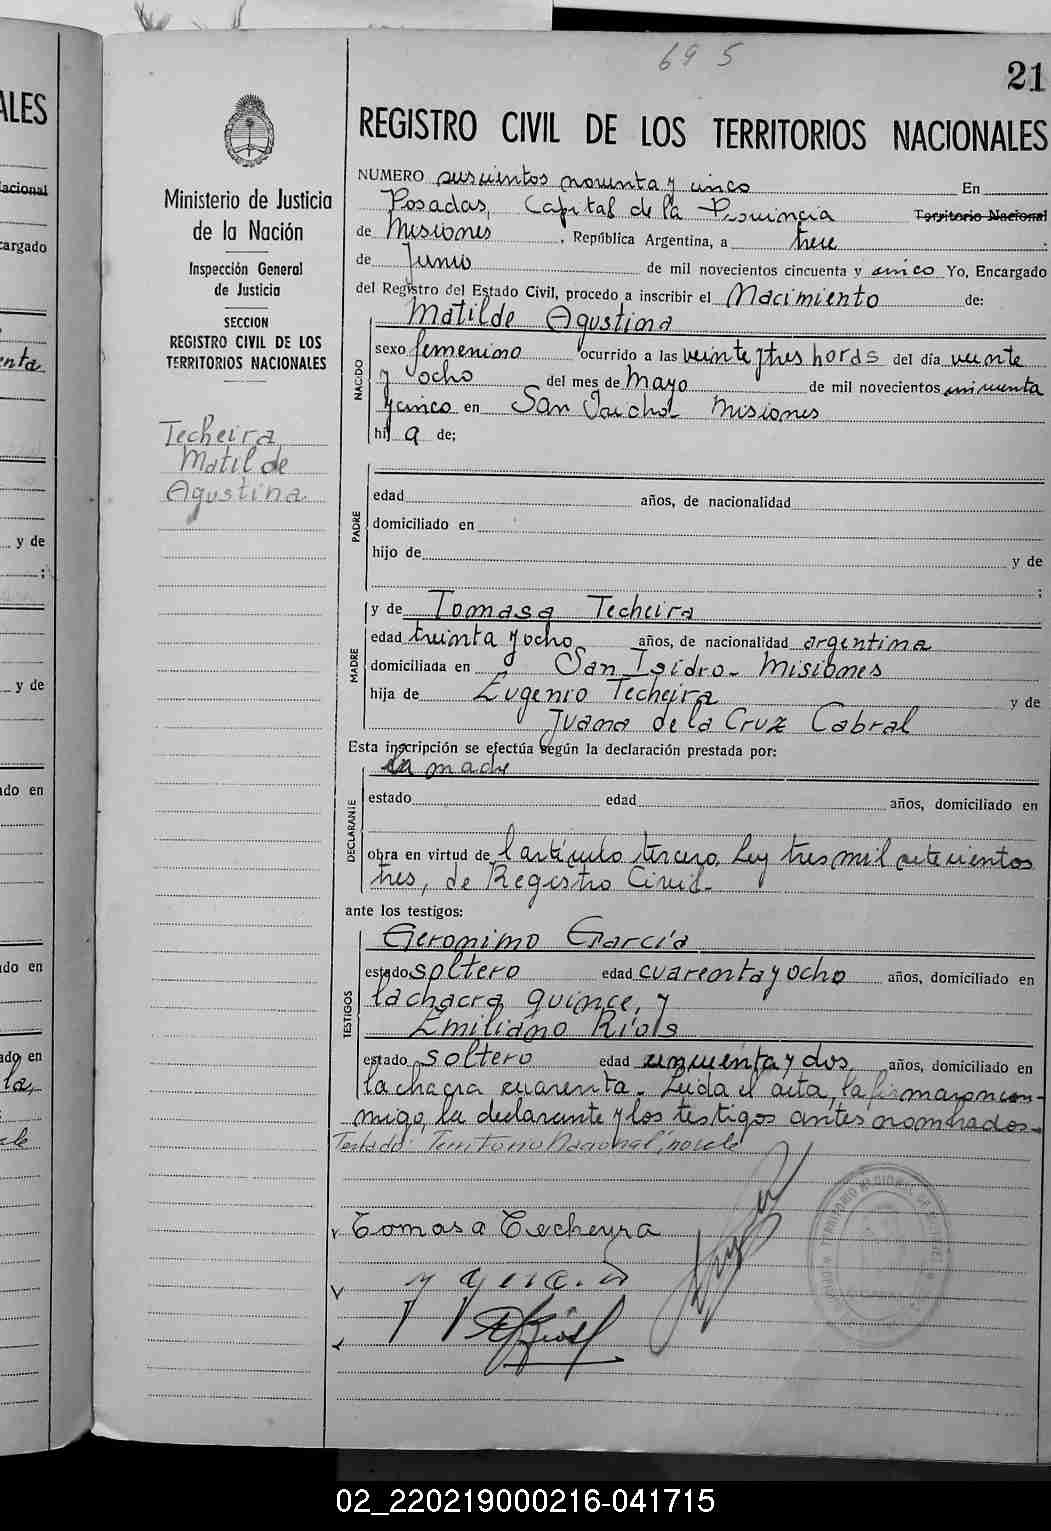 695
21
REGISTRO CIVIL DE LOS TERRITORIOS NACIONALES
Ministerio de Justicia
de la Nación
Inspección General
de Justicia
SECCION
REGISTRO CIVIL DE LOS
TERRITORIOS NACIONALES
Techeira
Matilde
Agustina
NUMERO seiscientos noventa y cinco En
Posadas, Capital de la Provincia Territorio Nacional
de Misiones, República Argentina, a trece
de Junio de mil novecientos cincuenta y cinco Yo, Encargado
del Registro del Estado Civil, procedo a inscribir el Nacimiento de:
NACIDO
Matilde Agustina
sexo femenino ocurrido a las veinte y tres horas del día veinte
y ocho del mes de Mayo de mil novecientos cincuenta
y cinco en San Misiones
hij a de;
PADRE
edad años, de nacionalidad
domiciliado en
hijo de y de
;
MADRE
y de Tomasa Techeira
edad treinta y ocho años, de nacionalidad argentina
domiciliada en San Isidro - Misiones
hija de Eugenio Techeira y de
Juana de la Cruz Cabral
Esta inscripción se efectúa según la declaración prestada por:
DECLARANTE
la madre
estado edad años, domiciliado en
obra en virtud de l artículo tercero, Ley tres mil setecientos
tres, de Registro Civil.
ante los testigos:
TESTIGOS
Geronimo García
estado soltero edad cuarenta y ocho años, domiciliado en
la chacra quince, y
Emiliano Ríols
estado soltero edad cincuenta y dos, años, domiciliado en
la chacra cuarenta. Leida el acta, la firmaron con-
migo, la declarante y los testigos antes nombrados.-
Testado: Territorio Nacional, no vale
Tomasa Techeyra
02_220219000216-041715